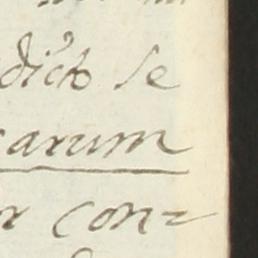 dicto se
arum
r con=